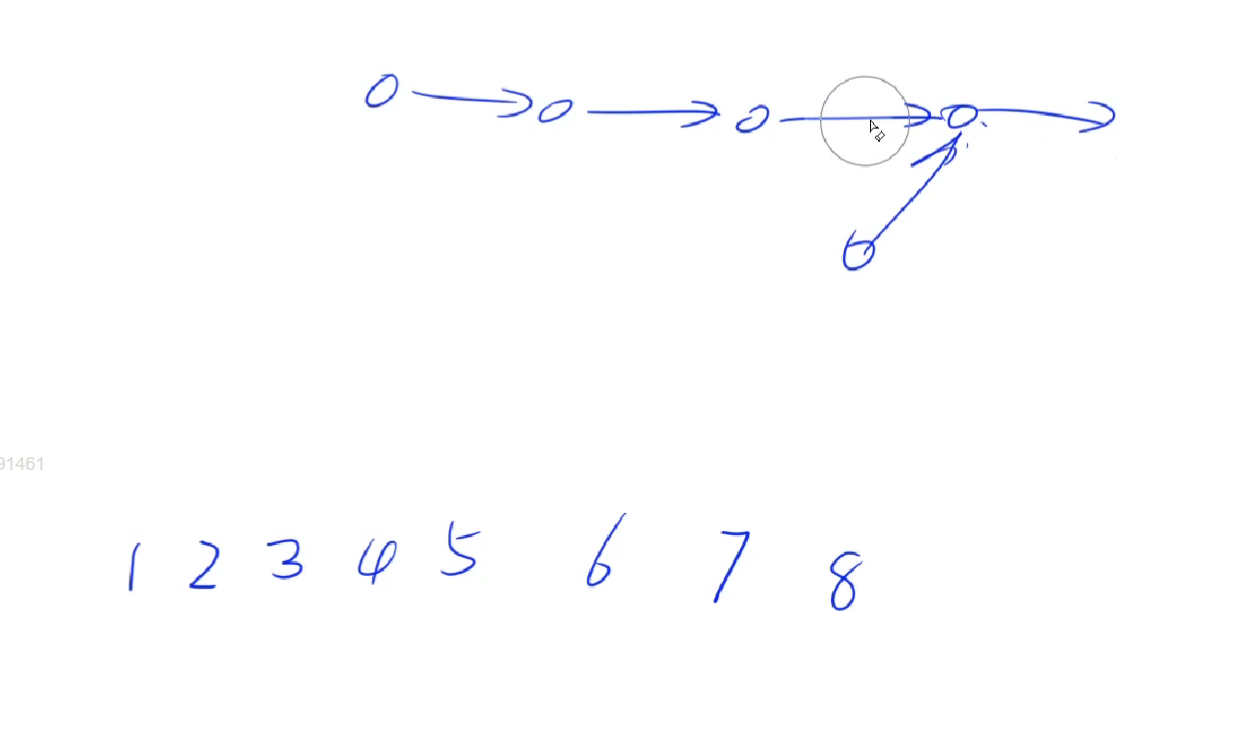 91461
1 2 3 4 5 6 7 8